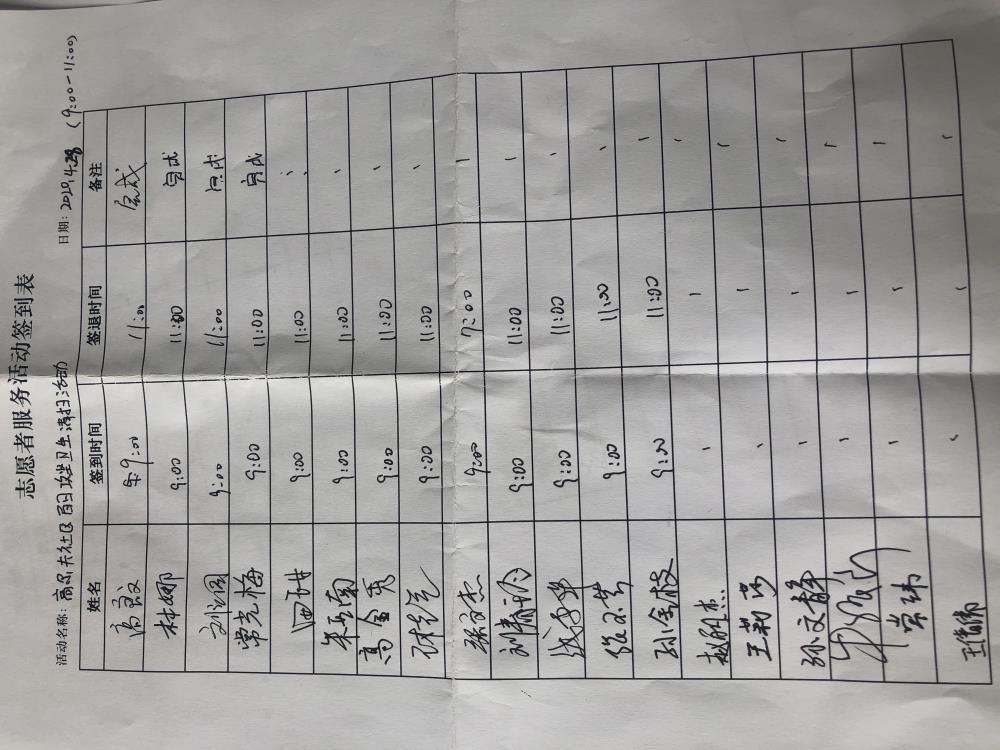 志愿者服务活动签到表
活动名称: 社区百日攻坚卫生清扫活动 日期: 2019.4.28 (9:00-11:00)
姓名 签到时间 签退时间 备注
9:00 11:00 完成
林娜 9:00 11:00 完成
刘 9:00 11:00 完成
常光梅 9:00 11:00 完成
9:00 11:00 、
朱玉南 9:00 11:00 、
高金秀 9:00 11:00 、
9:00 11:00 、
张文杰 9:00 、
刘春明 9:00 11:00 、
9:00 11:00 、
9:00 11:00 、
孙金枝 9:00 11:00 、
赵 杰 、 、 、
王莉莎 、 、 、
孙文静 、 、 、
、 、 、
常玮 、 、 、
王伟 、 、 、